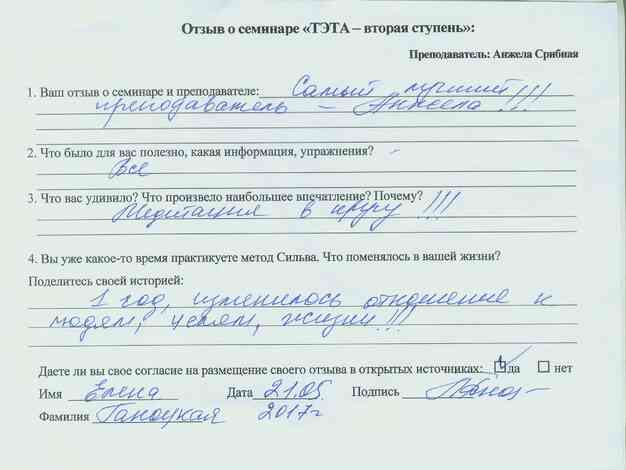 Отзыв о семинаре «ТЭТА – вторая ступень»:
Преподаватель: Анжела Срибная
1. Ваш отзыв о семинаре и преподавателе: Самый лучший
преподаватель – Анжела!!!
2. Что было для вас полезно, какая информация, упражнения?
Все
3. Что вас удивило? Что произвело наибольшее впечатление? Почему?
Медитация в кругу!!!
4. Вы уже какое-то время практикуете метод Сильва. Что поменялось в вашей жизни?
Поделитесь своей историей:
1 год, изменилось отношение к
людям, целям, жизни!!!
Даете ли вы свое согласие на размещение своего отзыва в открытых источниках: да нет
Имя Елена Дата 21.05 Подпись
Фамилия 2017г